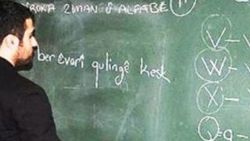 ROKA ZIMAN Û ALFABE
berêvarî qulingê kesk
V
W
X
Q=q